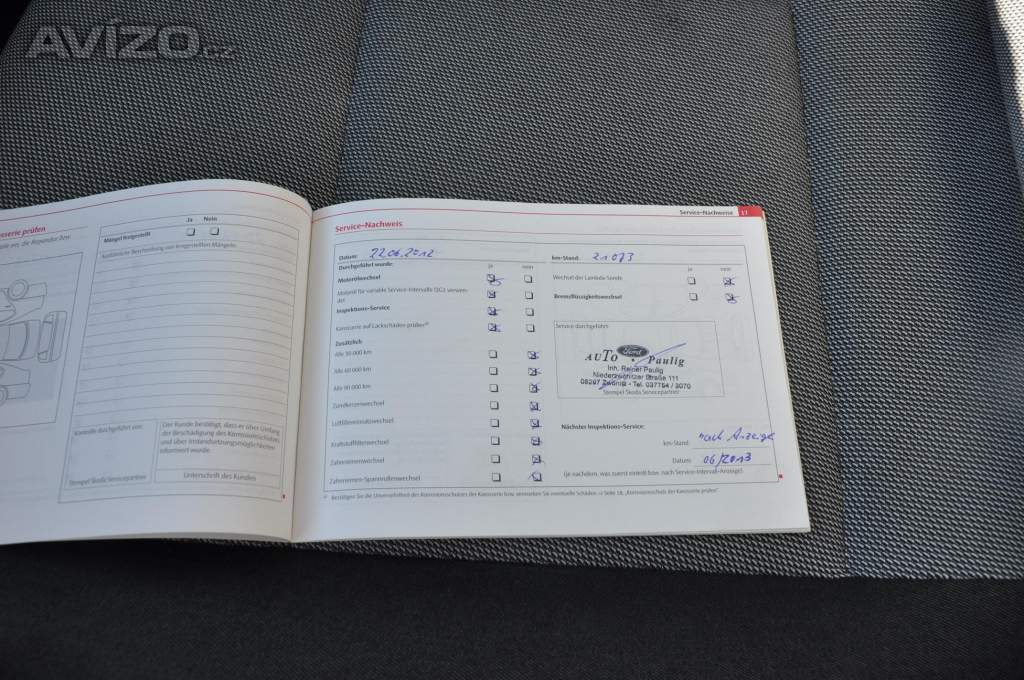 AVÍZO.cz
sserie prüfen
Ja Nein
Mängel festgestellt
Ausführliche Beschreibung von festgestellten Mängeln:
Kontrolle durchgeführt von:
Stempel Škoda Servicepartner
Der Kunde bestätigt, dass er über Umfang
der Beschädigung des Korrosionsschutzes
und über Instandsetzungsmöglichkeiten
informiert wurde.
Unterschrift des Kunden
Service-Nachweise 17
Service-Nachweis
Datum: 22.06.2012
km-Stand: 21073
Durchgeführt wurde: ja nein
Motorölwechsel
Motoröl für variable Service-Intervalle QG1 verwen-
det
Inspektions-Service
Karosserie auf Lackschäden prüfen
Zusätzlich
Alle 30 000 km
Alle 60 000 km
Alle 90 000 km
Zündkerzenwechsel
Luftfiltereinsatzwechsel
Kraftstofffilterwechsel
Zahnriemenwechsel
Zahnriemen-Spannrollenwechsel
ja nein
Wechsel der Lambda-Sonde
Bremsflüssigkeitswechsel
Service durchgeführt:
Ford
AUTO Paulig
Inh. Rainer Paulig
Niederzwönitzer Straße 111
08297 Zwönitz • Tel. 037754 / 3070
Stempel Škoda Servicepartner
Nächster Inspektions-Service:
km-Stand: nach Anzeige
Datum: 06/2013
(je nachdem, was zuerst eintritt bzw. nach Service-Intervall-Anzeige)
Bestätigen Sie die Unversehrtheit des Korrosionsschutzes der Karosserie bzw. vermerken Sie eventuelle Schäden ⇒ Seite 38, „Korrosionsschutz der Karosserie prüfen"